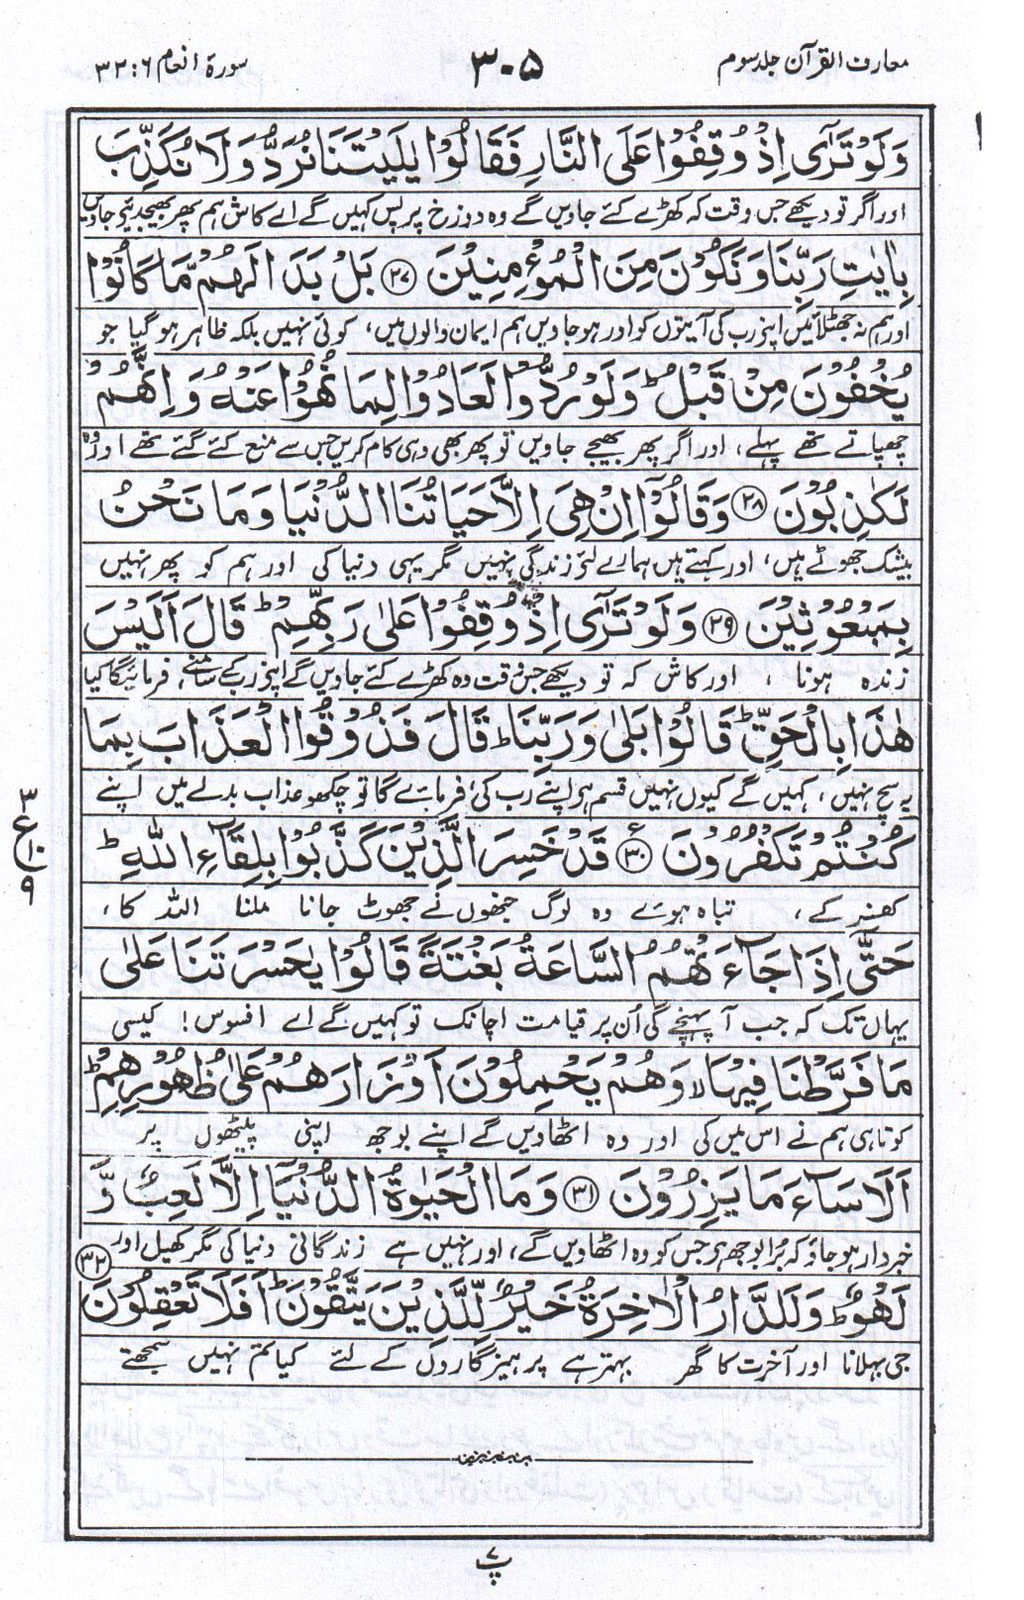 معارف القرآن جلد سوم
۳۰۵
سورۃ انعام ۶ : ۳۲
وَلَوْ تَرٰٓى اِذْ وُقِفُوْا عَلَى النَّارِ فَقَالُوْا يٰلَيْتَنَا نُرَدُّ وَلَا نُكَذِّبَ
اور اگر تو دیکھے جس وقت کہ کھڑے کئے جاویں گے وہ دوزخ پر پس کہیں گے اے کاش ہم پھر بھیجدیئے جاویں
بِاٰيٰتِ رَبِّنَا وَنَكُوْنَ مِنَ الْمُؤْمِنِيْنَ ﴿۲۷﴾ بَلْ بَدَا لَهُمْ مَّا كَانُوْا
اور ہم نہ جھٹلائیں اپنے رب کی آیتوں کو اور ہو جاویں ہم ایمان والوں میں، کوئی نہیں بلکہ ظاہر ہو گیا جو
يُخْفُوْنَ مِنْ قَبْلُ ؕ وَلَوْ رُدُّوْا لَعَادُوْا لِمَا نُهُوْا عَنْهُ وَاِنَّهُمْ
چھپاتے تھے پہلے، اور اگر پھر بھیجے جاویں تو پھر بھی وہی کام کریں جس سے منع کئے گئے تھے اور وہ
لَكٰذِبُوْنَ ﴿۲۸﴾ وَقَالُوْٓا اِنْ هِىَ اِلَّا حَيَاتُنَا الدُّنْيَا وَمَا نَحْنُ
بیشک جھوٹے ہیں، اور کہتے ہیں ہمارے لئے زندگی نہیں مگر یہی دنیا کی اور ہم کو پھر نہیں
بِمَبْعُوْثِيْنَ ﴿۲۹﴾ وَلَوْ تَرٰٓى اِذْ وُقِفُوْا عَلٰى رَبِّهِمْ ؕ قَالَ اَلَيْسَ
زندہ ہونا ، اور کاش کہ تو دیکھے جس وقت وہ کھڑے کئے جاویں گے اپنے رب کے سامنے، فرمائیگا کیا
هٰذَا بِالْحَقِّ ؕ قَالُوْا بَلٰى وَرَبِّنَا ؕ قَالَ فَذُوْقُوا الْعَذَابَ بِمَا
یہ سچ نہیں، کہیں گے کیوں نہیں قسم ہے اپنے رب کی، فرمائے گا تو چکھو عذاب بدلے میں اپنے
كُنْتُمْ تَكْفُرُوْنَ ﴿۳۰﴾ قَدْ خَسِرَ الَّذِيْنَ كَذَّبُوْا بِلِقَآءِ اللّٰهِ ؕ
کفر کے، تباہ ہوئے وہ لوگ جنھوں نے جھوٹ جانا ملنا اللہ کا،
حَتّٰٓى اِذَا جَآءَتْهُمُ السَّاعَةُ بَغْتَةً قَالُوْا يٰحَسْرَتَنَا عَلٰى
یہاں تک کہ جب آ پہنچے گی اُن پر قیامت اچانک تو کہیں گے اے افسوس! کیسی
مَا فَرَّطْنَا فِيْهَا ۙ وَهُمْ يَحْمِلُوْنَ اَوْزَارَهُمْ عَلٰى ظُهُوْرِهِمْ ؕ
کوتاہی ہم نے اس میں کی اور وہ اٹھاویں گے اپنے بوجھ اپنی پیٹھوں پر
اَلَا سَآءَ مَا يَزِرُوْنَ ﴿۳۱﴾ وَمَا الْحَيٰوةُ الدُّنْيَآ اِلَّا لَعِبٌ وَّ
خبردار ہو جاؤ کہ برا بوجھ ہے جس کو وہ اٹھاویں گے، اور نہیں ہے زندگانی دنیا کی مگر کھیل اور
لَهْوٌ ؕ وَلَلدَّارُ الْاٰخِرَةُ خَيْرٌ لِّلَّذِيْنَ يَتَّقُوْنَ ؕ اَفَلَا تَعْقِلُوْنَ ﴿۳۲﴾
جی بہلانا اور آخرت کا گھر بہتر ہے پرہیزگاروں کے لئے کیا تم نہیں سمجھتے
۳
ع
۱۰
۹